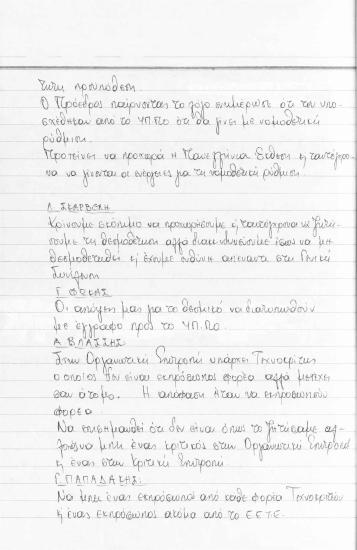 τυπη προυπόθεση.
Ο Πρόεδρος παίρνοντας το λόγο ενημέρωσε ότι του υπο-
σχέθηκαν από το ΥΠ.ΠΟ ότι θα γίνει με νομοθετική
ρύθμιση.
Προτείνει να προχωρά η Πανελλήνια Έκθεση κ ταυτόχρο-
να να γίνονται οι ενέργειες για τη νομοθετική ρύθμιση.
Κρίνουμε σκόπιμο να προχωρήσουμε κ ταυτόχρονα να ζητή-
σουμε τη θεσμοθέτηση αλλά διακινδυνεύουμε ίσως να μη
θεσμοθετηθεί κ έχουμε ευθύνη απέναντι στη Γενική
Συνέλευση
Γ. ΦΩΚΑΣ
Οι απόψεις μας για το θεσμικό να διατυπωθούν
με έγγραφο προς το ΥΠ.ΠΟ.
Α. ΒΛΑΣΣΗΣ
Στην Οργανωτική Επιτροπή υπάρχει Τεχνοκρίτης
ο οποίος δεν είναι εκπρόσωπος φορέα αλλά μετέχει
σαν άτομο. Η απόφαση ήταν να εκπροσωπούν
φορέα
Να επισημανθεί ότι δεν είναι όπως το ζητήσαμε αλ-
να μπει ένας κριτικός στην Οργανωτική Επιτροπή
κ ένας στην Κριτική Επιτροπή.
Γ. ΠΑΠΑΔΑΚΗΣ:
Να μπει ένας εκπρόσωπος από κάθε φορέα Τεχνοκριτών
κ ένας εκπρόσωπος ακόμα από το ΕΕΤΕ.